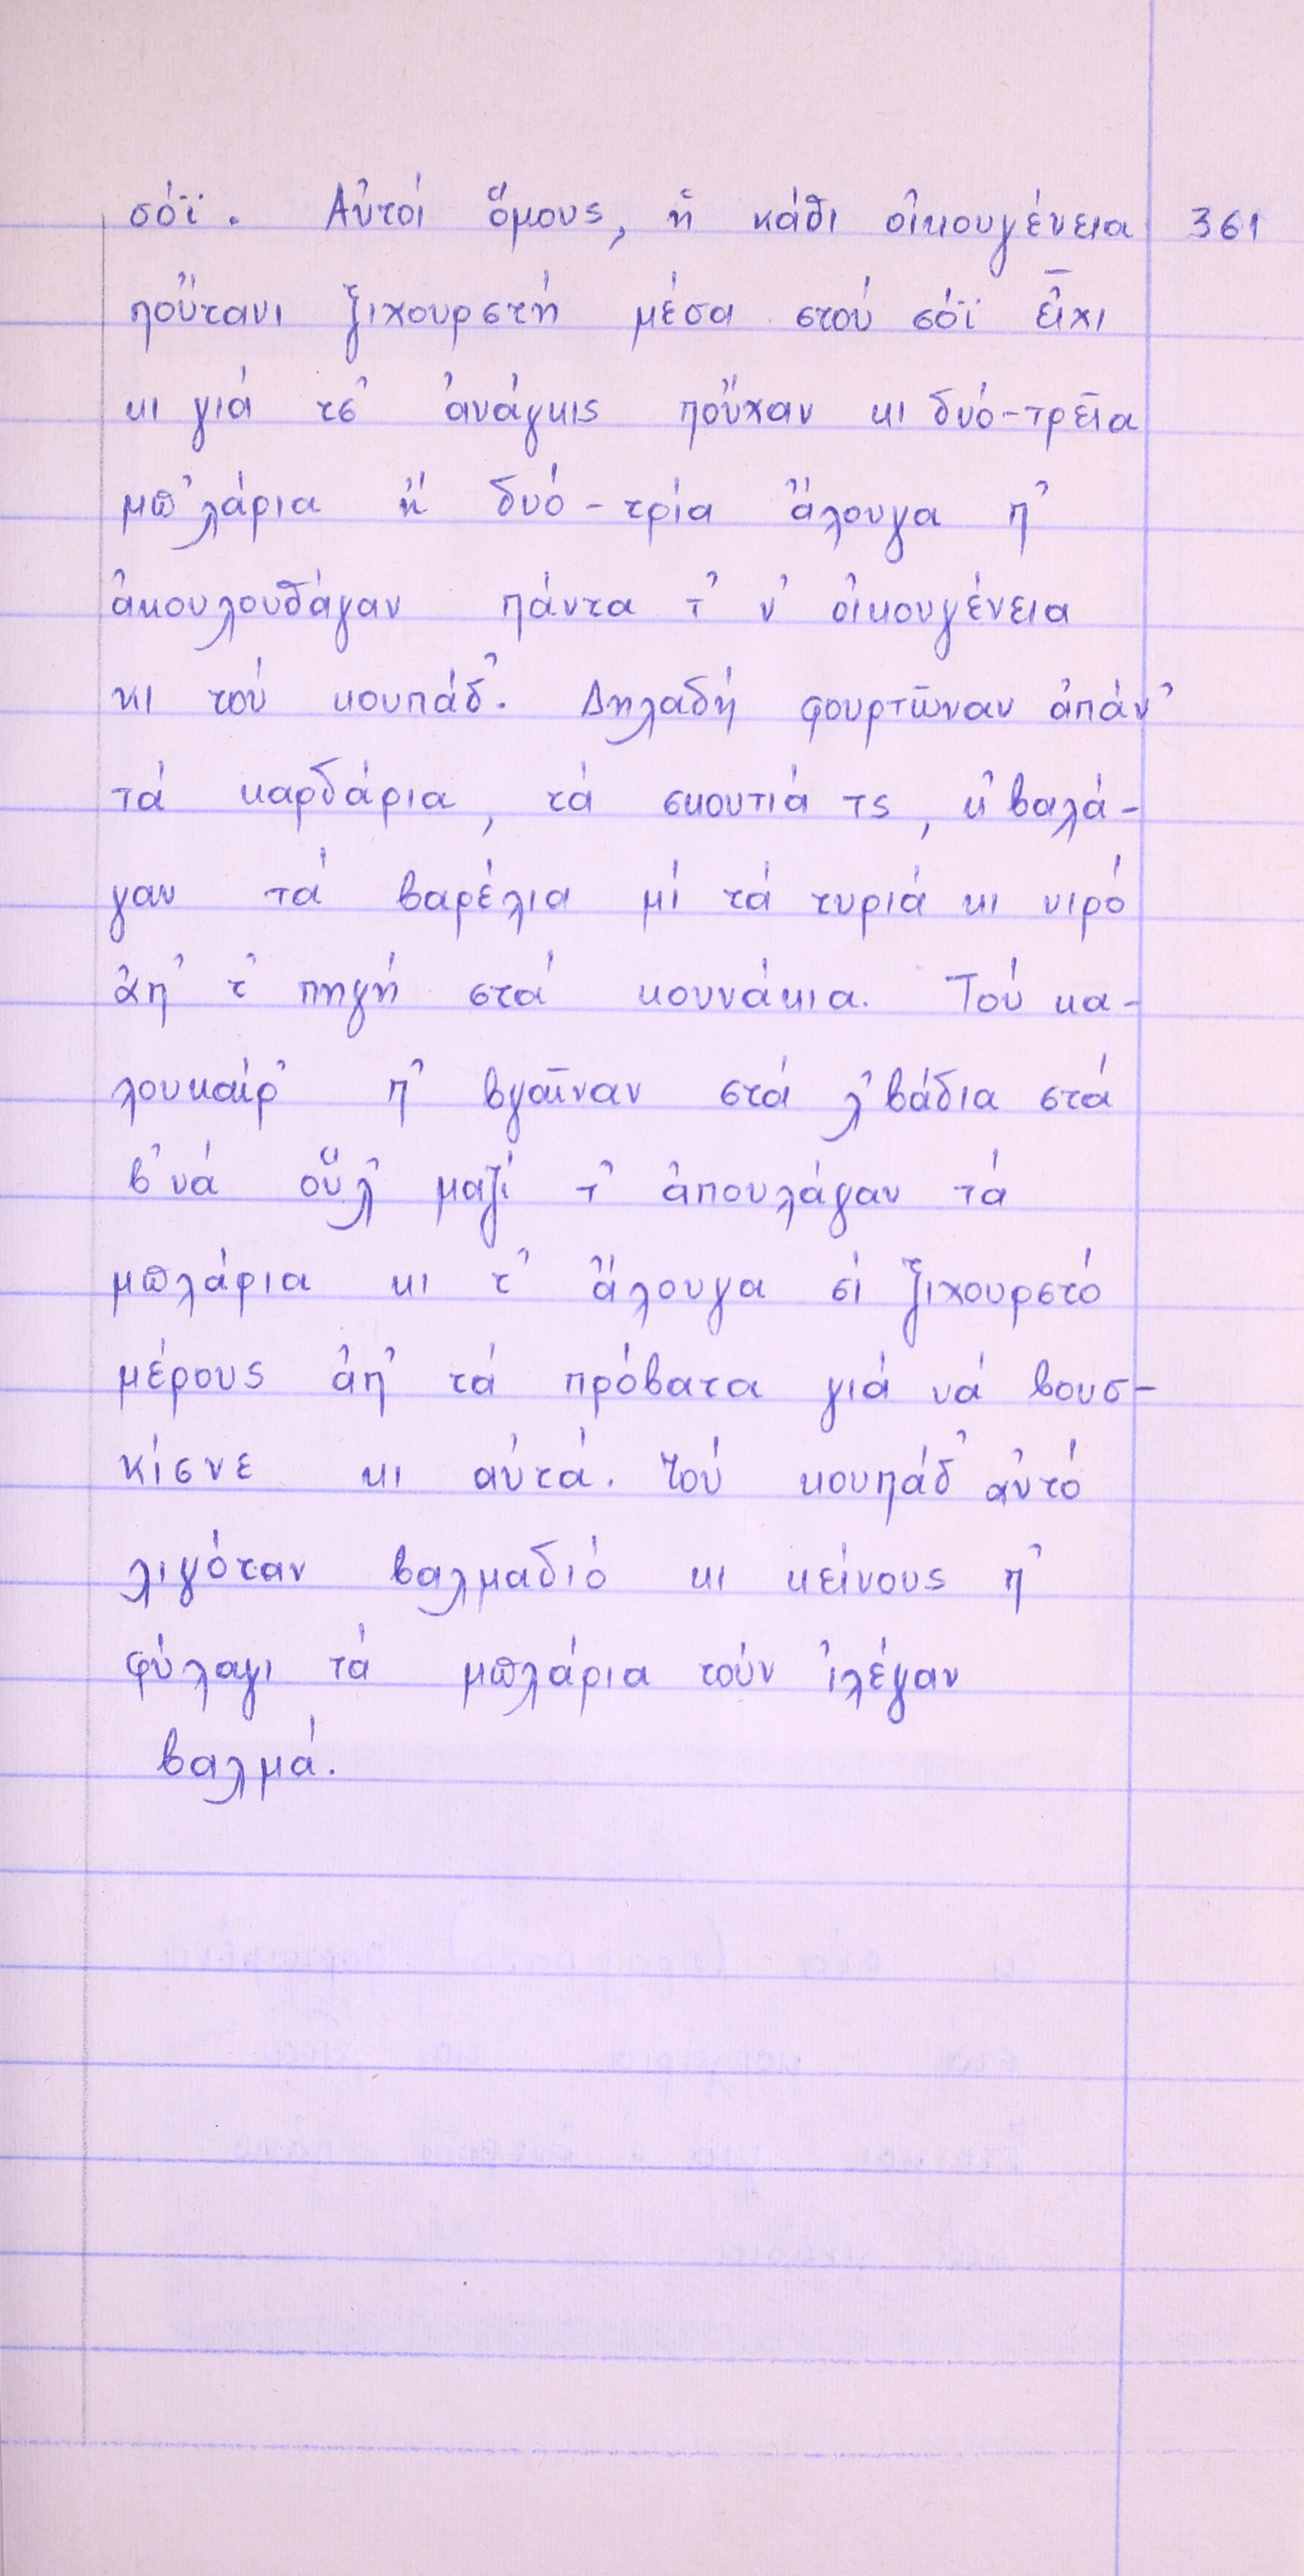 σόϊ. Αὐτοί ὅμους, ἤ κάθι οἰκουγένεια 361
ποὔτανι ξιχουρστή μέσα στού σόϊ εἶχι
κι γιά τσ' ἀνάγκις ποὔχαν κι δυό-τρεῖα
μπ'λάρια ἤ δυό-τρία ἄλουγα π'
ἀκουλουθάγαν πάντα τ' ν' οἰκουγένεια
κι τού κουπάδ'. Δηλαδή φουρτῶναν ἀπάν'
τά καρδάρια, τά σκουτιά τς, κ'βαλά-
γαν τά βαρέλια μί τά τυριά κι νιρό
ἀπ' τ' πηγή στά κουνάκια. Τού κα-
λουκαίρ' π' βγαῖναν στά λ'βάδια στά
β'νά οὕλ' μαζί τ' ἀπουλάγαν τά
μπλάρια κι τ' ἄλουγα σί ξιχουρστό
μέρους ἀπ' τά πρόβατα γιά νά βουσ-
κίσνε κι αὐτά. Τού κουπάδ' αὐτό
λιγόταν βαλμαδιό κι κείνους π'
φύλαγι τά μπλάρια τούν ἰλέγαν
βαλμά.